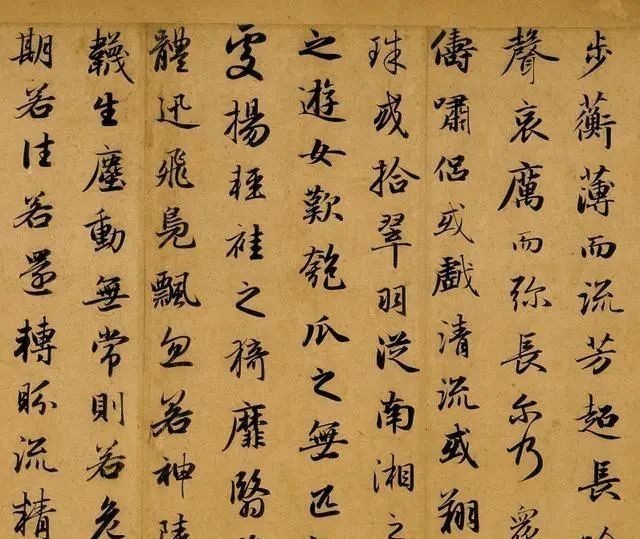 步蘅薄而流芳超長
聲哀厲而弥長尔乃
儔嘯侣或戲清流或翔
珠或拾翠羽從南湘之
之遊女歎匏瓜之無匹
旻揚輕袿之猗靡翳
體迅飛鳧飄忽若神陵
韈生塵動無常則若危
期若往若還轉盼流精